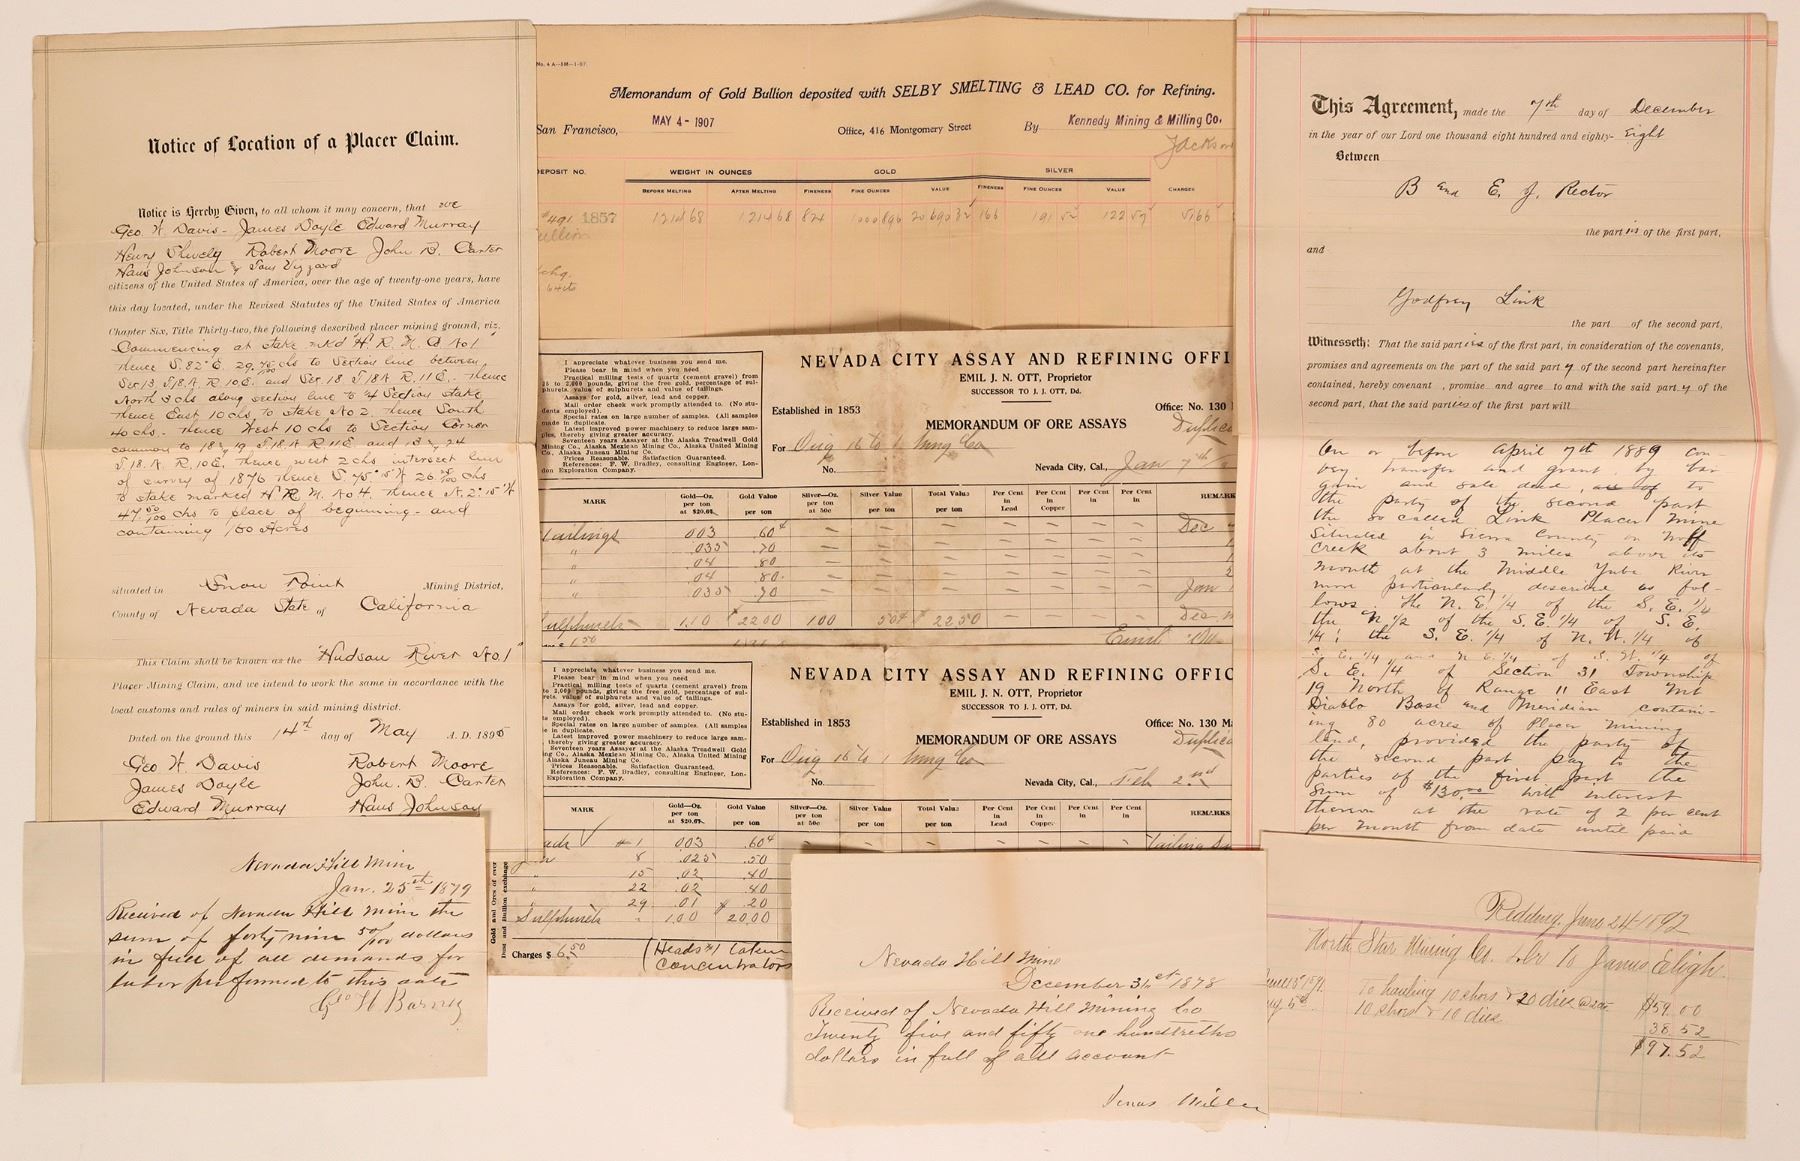 Notice of Location of a Placer Claim.
Notice is Hereby Given, to all whom it may concern, that we
Geo W. Davis - James Doyle Edward Murray
Henry Shively Robert Moore John B. Carter
Hans Johnson &
citizens of the United States of America, over the age of twenty-one years, have
this day located, under the Revised Statutes of the United States of America
Chapter Six, Title Thirty-two, the following described placer mining ground, viz.
Commencing at stake mkd H. R. M. No 1
thence S. 82° E. 29. 75/100 chs to Section line between
Sec 13 T18.N. R. 10E. and Sec. 18 T18N R. 11E. thence
North 3 chs along section line to 1/4 Section stake
thence East 10 chs. to stake No 2. thence South
40 chs. thence West 10 chs to Section Corner
common to 18 & 19 T.18.N R 11E and 13 & 24
T18. N. R. 10E. thence west 2 chs intersect line
of survey of 1876 thence S. 75° 15' W 26 chs
to stake marked H R M. No 4. thence N. 2° 15' W
47 50/100 chs to place of beginning - and
containing 160 Acres
situated in Snow Point Mining District,
County of Nevada State of California
This Claim shall be known as the "Hudson River No. 1"
Placer Mining Claim, and we intend to work the same in accordance with the
local customs and rules of miners in said mining district.
Dated on the ground this 14th day of May A. D. 1895
Geo W. Davis Robert Moore
James Doyle John. B. Carter
Edward Murray Hans Johnson
No. 4 A--5M--1-07
Memorandum of Gold Bullion deposited with SELBY SMELTING & LEAD CO. for Refining.
San Francisco, MAY 4 - 1907 Office, 416 Montgomery Street By Kennedy Mining & Milling Co.
Jackson
DEPOSIT NO. WEIGHT IN OUNCES GOLD SILVER
BEFORE MELTING AFTER MELTING FINENESS FINE OUNCES VALUE FINENESS FINE OUNCES VALUE CHARGES
#491 1857 1214 68 1214 68 824 1000.896 20 690 82 166 191 52 122 57 5166
Bullion
chg.
I appreciate whatever business you send me.
Please bear in mind when you need
Practical milling tests of quartz (cement gravel) from
25 to 2,000 pounds, giving the free gold, percentage of sul-
phurets, value of sulphurets and value of tailings.
Assays for gold, silver, lead and copper.
Mail order check work promptly attended to. (No stu-
dents employed).
Special rates on large number of samples. (All samples
made in duplicate.
Latest improved power machinery to reduce large sam-
ples, thereby giving greater accuracy.
Seventeen years Assayer at the Alaska Treadwell Gold
Mining Co., Alaska Mexican Mining Co., Alaska United Mining
Co., Alaska Juneau Mining Co.
Prices Reasonable. Satisfaction Guaranteed.
References: F. W. Bradley, consulting Engineer, Lon-
don Exploration Company.
NEVADA CITY ASSAY AND REFINING OFFI
EMIL J. N. OTT, Proprietor
SUCCESSOR TO J. J. OTT, Dd.
Established in 1853 Office: No. 130
MEMORANDUM OF ORE ASSAYS Duplica
For Orig 16 to 1 Ming Co
No. Nevada City, Cal., Jan 7th
MARK Gold—Oz. per ton at $20.67. Gold Value per ton Silver—Oz. per ton at 50c Silver Value per ton Total Value per ton Per Cent in Lead Per Cent in Copper Per Cent in Per Cent in REMARK
Tailings .003 .60¢ Dec
" .035 .70
" .04 .80
" .04 .80
" .035 .70 Jan
Sulphurets 1.10 $22.00 1.00 50¢ $22.50 Dec
I appreciate whatever business you send me.
Please bear in mind when you need
Practical milling tests of quartz (cement gravel) from
to 2,000 pounds, giving the free gold, percentage of sul-
rets, value of sulphurets and value of tailings.
Assays for gold, silver, lead and copper.
Mail order check work promptly attended to. (No stu-
ts employed).
Special rates on large number of samples. (All samples
e in duplicate.
Latest improved power machinery to reduce large sam-
thereby giving greater accuracy.
Seventeen years Assayer at the Alaska Treadwell Gold
ing Co., Alaska Mexican Mining Co., Alaska United Mining
Alaska Juneau Mining Co.
Prices Reasonable. Satisfaction Guaranteed.
References: F. W. Bradley, consulting Engineer, Lon-
Exploration Company.
NEVADA CITY ASSAY AND REFINING OFFIC
EMIL J. N. OTT, Proprietor
SUCCESSOR TO J. J. OTT, Dd.
Established in 1853 Office: No. 130 M
MEMORANDUM OF ORE ASSAYS Duplica
For Orig 16 to 1 Ming Co
No. Nevada City, Cal., Feb 2nd
MARK Gold—Oz. per ton at $20.67. Gold Value per ton Silver—Oz. per ton at 50c Silver Value per ton Total Value per ton Per Cent in Lead Per Cent in Copper Per Cent in Per Cent in REMARKS
#1 .003 .60¢
8 .025 .50
" 15 .02 .40
" 22 .02 .40
" 29 .01 $ .20
Sulphurets " 1.00 20.00
Charges $ 6.50 (Heads #1 taken
concentrators
Gold and Ores of ever
Dust and Bullion exchange
This Agreement, made the 7th day of December
in the year of our Lord one thousand eight hundred and eighty-Eight
Between
B and E. J. Rector
the parties of the first part,
and
Godfrey Link
the part of the second part,
Witnesseth: That the said parties of the first part, in consideration of the covenants,
promises and agreements on the part of the said party of the second part hereinafter
contained, hereby covenant , promise and agree to and with the said party of the
second part, that the said parties of the first part will
On or before April 7th 1889 con-
vey transfer and grant by bar
gain and sale deed, to
the party of the second part
the so called Link Placer Mine
situated in Sierra County on Wolf
Creek about 3 miles above its
mouth at the Middle Yuba River
more particularly described as fol-
lows. The N. E. 1/4 of the S. E. 1/4
the N 1/2 of the S. E. 1/4 of S. E.
1/4; the S. E. 1/4 of N. W. 1/4 of
S. E. 1/4 and N. E. 1/4 of S. W. 1/4 of
S. E. 1/4 of Section 31 Township
19 North of Range 11 East Mt
Diablo Base and Meridian contain-
ing 80 acres of Placer mining
land, provided the party of
the second part pay to the
parties of the first part the
sum of $130.00 with interest
thereon at the rate of 2 per cent
per month from date until paid
Nevada Hill Mine
Jan. 25th 1879
Received of Nevada Hill Mine the
sum of forty nine 50/100 dollars
in full of all demands for
labor preformed to this date
Geo W Barney
Nevada Hill Mine
December 31st 1878
Received of Nevada Hill Mining Co
Twenty five and fifty one hundreths
dollars in full of all account
Jonas Miller
Redding. June 24 1892
North Star Mining Co. Dr To James Eligh.
To hauling 10 shoes & 20 dies $59.00
10 shoes & 10 dies 38.52
$97.52